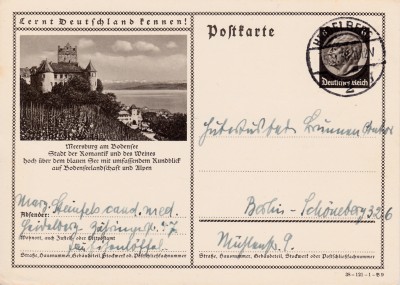 Lernt Deutschland kennen!
Meersburg am Bodensee
Stadt der Romantik und des Weines
hoch über dem blauen See mit umfassendem Rundblick
auf Bodenseelandschaft und Alpen
Absender:
cand. med.
Heidelberg
Wohnort, auch Zustell- oder Leitpostamt
bei
Straße, Hausnummer, Gebäudeteil, Stockwerk od. Postschließfachnummer
Postkarte
HEIDELBERG
Deutsches Reich
2
Berlin-Schöneberg
Mühlenstr. 9.
Straße, Hausnummer, Gebäudeteil, Stockwerk oder Postschließfachnummer